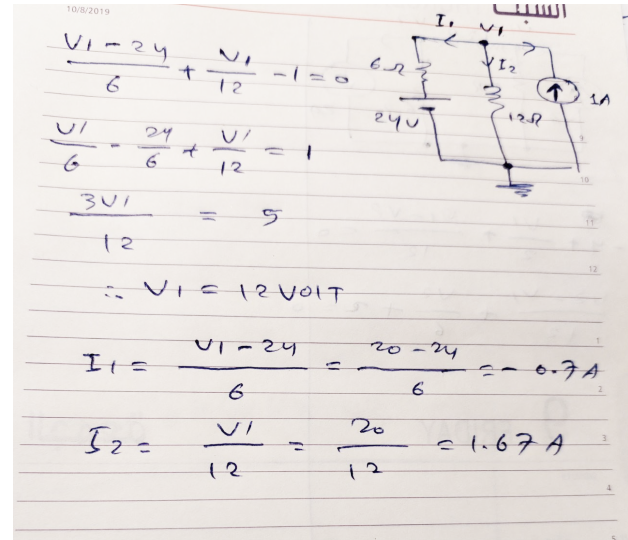 10/8/2019
السبت
I1 V1
V1 - 24 / 6 + V1 / 12 - 1 = 0
6Ω I2 1A
24V 12Ω
V1 / 6 - 24 / 6 + V1 / 12 = 1
9
10
3V1 / 12 = 5
11
12
∴ V1 = 12 VOlT
1
I1 = V1 - 24 / 6 = 20 - 24 / 6 = - 0.7 A
2
I2 = V1 / 12 = 20 / 12 = 1.67 A
3
4
5